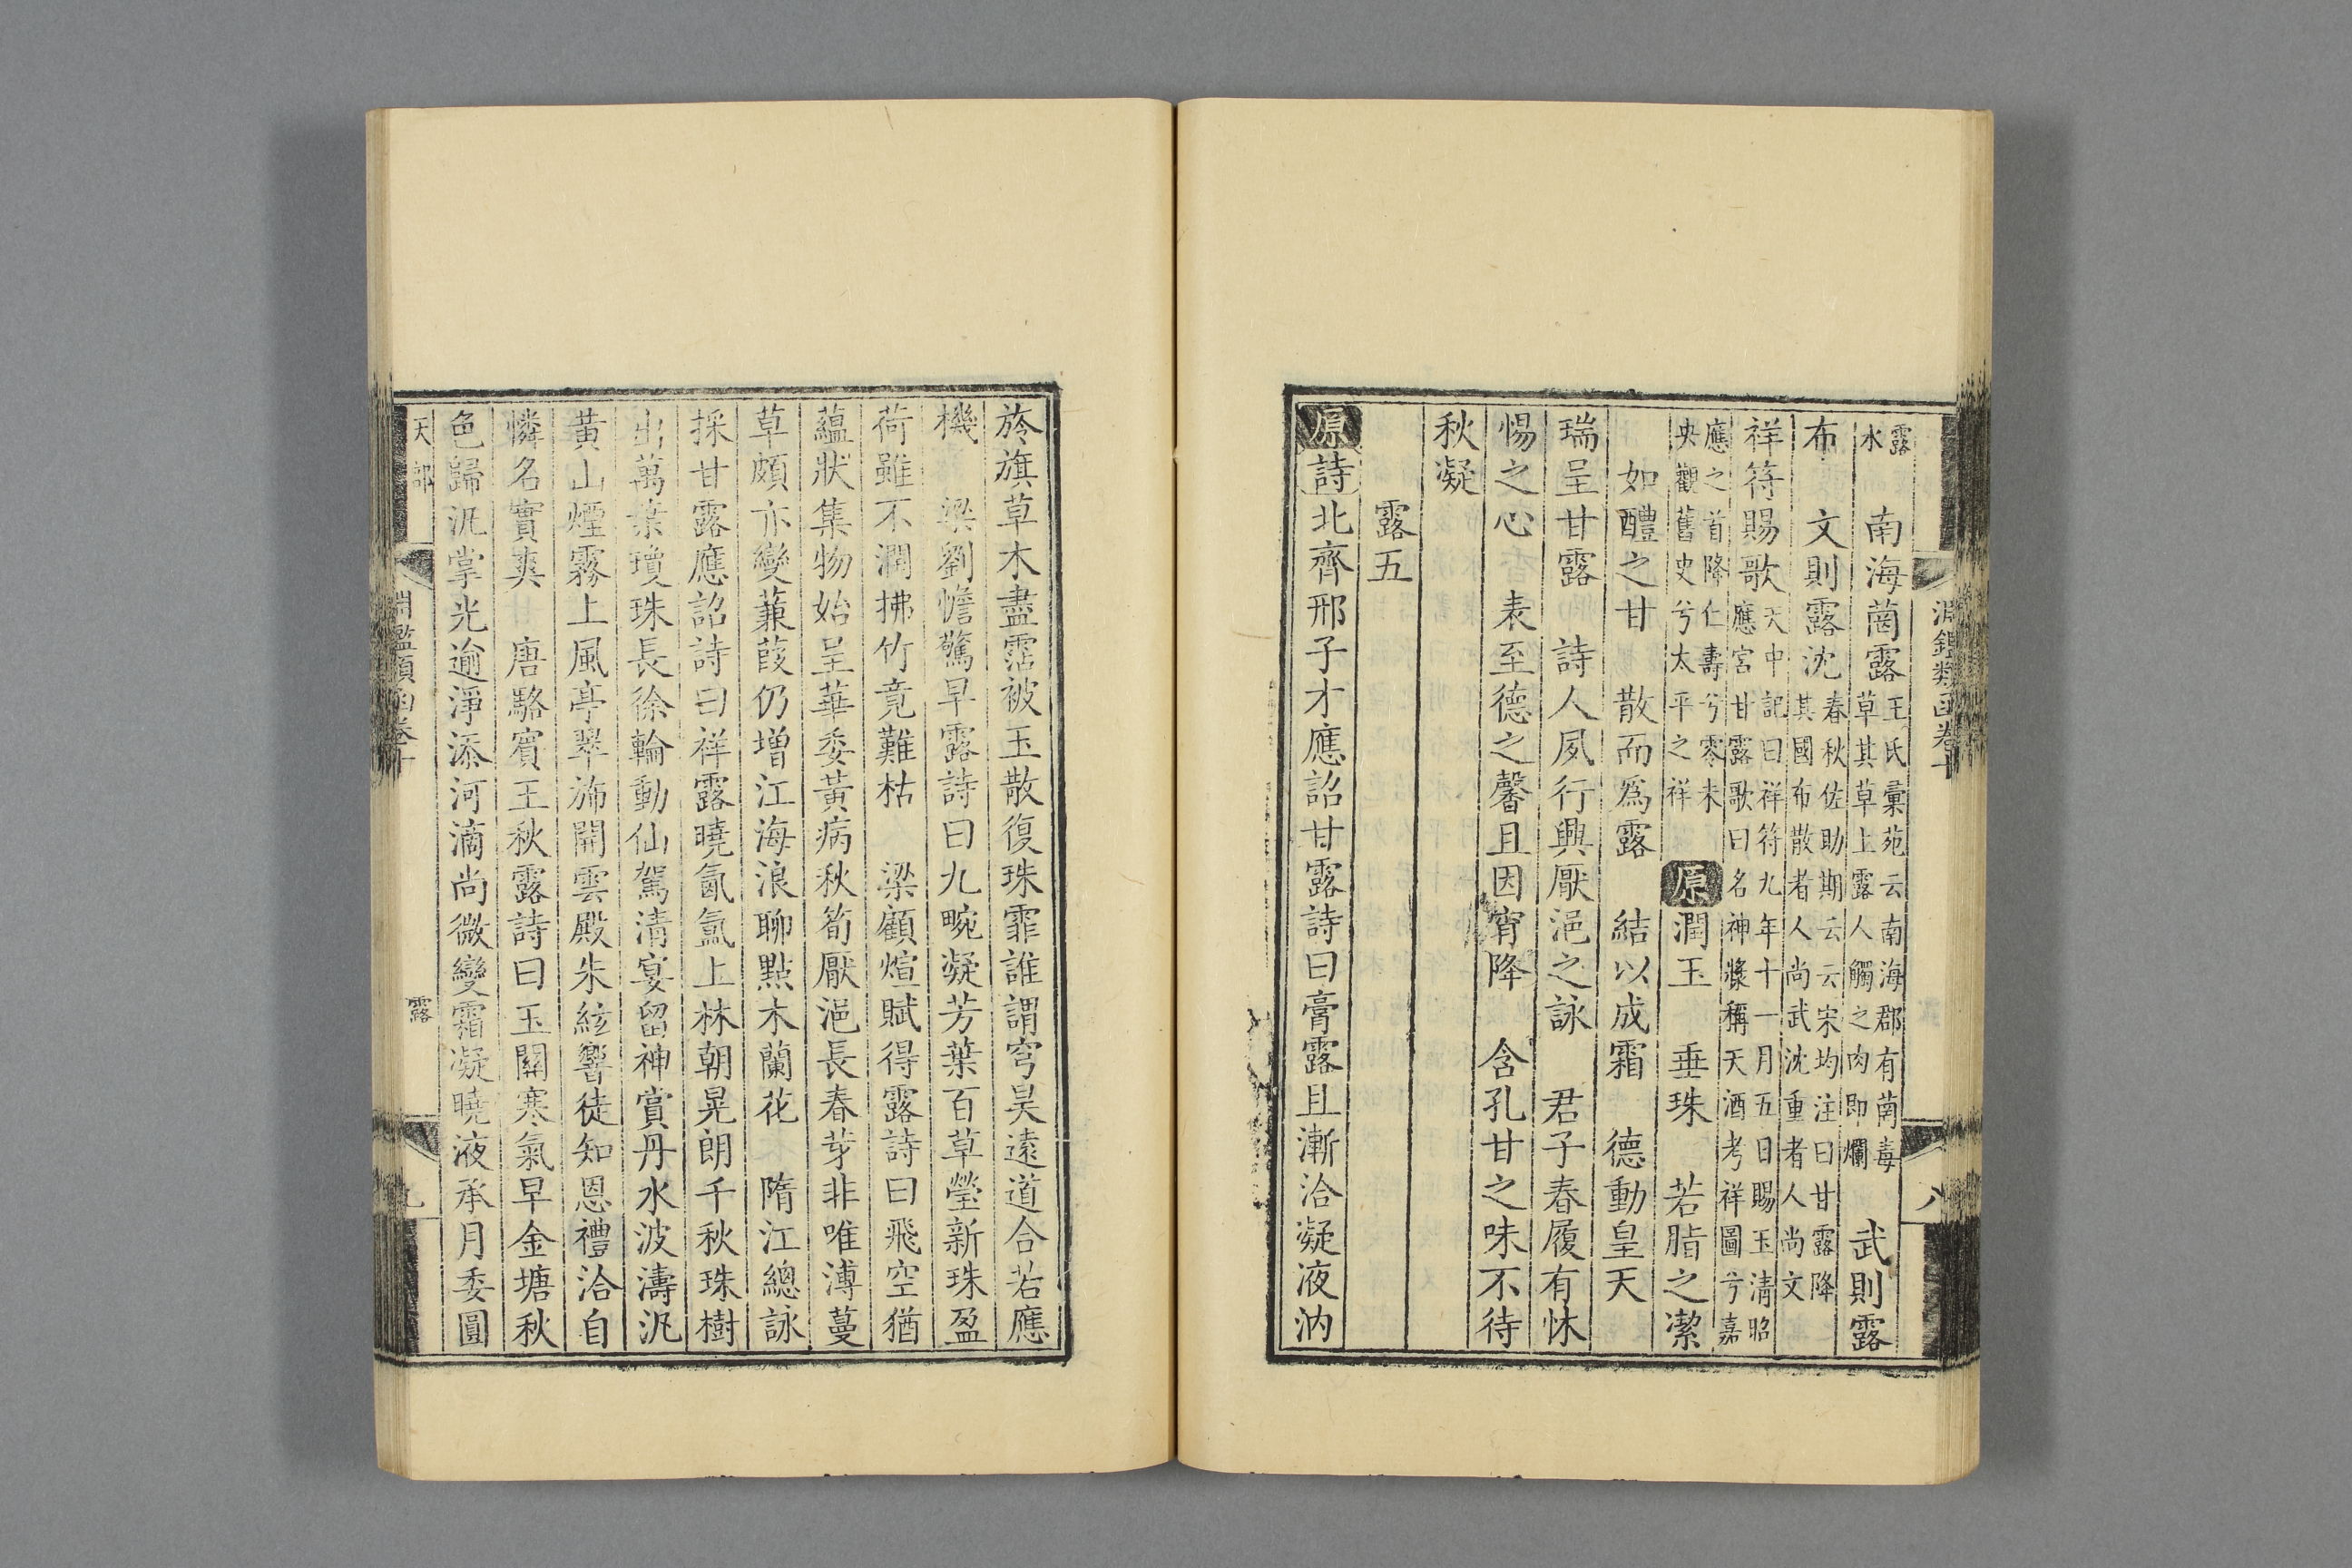 淵鑑類函卷十 八
露水 南海菌露王氏彙苑云南海郡有南毒草其草上露人觸之肉即爛 武則露
布 文則露沈春秋佐助期云云宋均注曰甘露降其國布散者人尚武沈重者人尚文
祥符賜歌天中記曰祥符九年十一月五日賜玉清昭應宮甘露歌曰名神漿稱天酒考祥圖兮嘉
應之首降仁壽兮零未央觀舊史兮太平之祥 原潤玉 垂珠 若脂之潔
如醴之甘 散而爲露 結以成霜 德動皇天
瑞呈甘露 詩人夙行興厭浥之詠 君子春履有怵
惕之心 表至德之馨且因宵降 含孔甘之味不待
秋凝
露五
原詩北齊邢子才應詔甘露詩曰膏露且漸洽凝液汭
旍旗草木盡霑被玉散復珠霏誰謂穹昊遠道合若應
機 梁劉憺驚早露詩曰九畹凝芳葉百草瑩新珠盈
荷雖不潤拂竹竟難枯 梁顧煊賦得露詩曰飛空猶
蘊狀集物始呈華委黃病秋筍厭浥長春芽非唯溥蔓
草頗亦變蒹葭仍增江海浪聊點木蘭花 隋江總詠
採甘露應詔詩曰祥露曉氤氳上林朝晃朗千秋珠樹
出萬葉瓊珠長徐輪動仙駕清宴留神賞丹水波濤汎
黃山煙霧上風亭翠旆開雲殿朱絃響徒知恩禮洽自
憐名實爽 唐駱賓王秋露詩曰玉關寒氣早金塘秋
色歸汎掌光逾淨添河滴尚微變霜凝曉液承月委圓
天部 淵鑑類函卷十 露 九